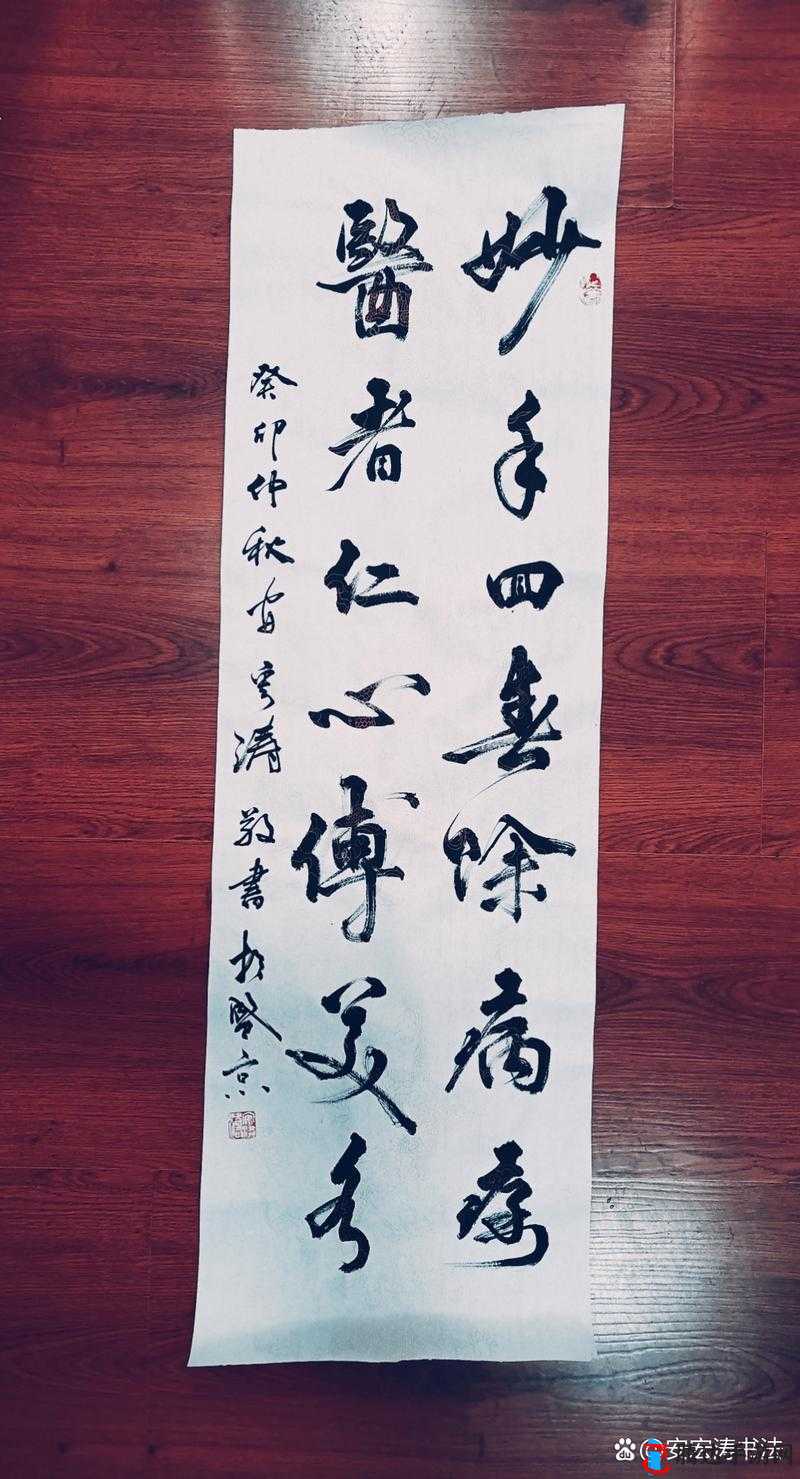 妙手回春除病疼
醫者仁心傳美名
癸卯仲秋安宏涛敬書於北京
@安宏涛书法